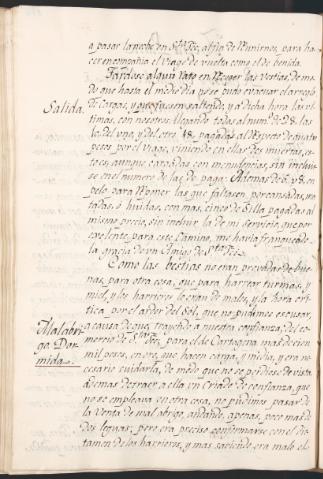 a pasar la noche en S.ta Fee, al fijo de Nunirnos, para ha
cer en compañia el Viage de vuelta como el de benida.
Tardose algun rato en Recoger las vestias, de mo
do que hasta el medio dia no se pudo evacuar el arreglo
Salida.
de Cargas, y que fuesen saliendo, y a dicha hora las ben
timos, con nosotros llegando todas al num.o de 28. las
10. del una, y del otro 18. pagadas al Respecto de quatro
pesos por el viage, viniendo en ellas dos muertas,
aunque cargadas con menudencias, sin inclui
se en el numero de las de paga. Ademas de 6. y 8. en
pelo para Reponer las que faltasen, por cansadas, ma
tadas, o huidas, con mas, cinco de Silla pagadas al
mismo precio, sin incluir la de mi servicio, que por
excelente, para este Camino, me havia franqueado
la gracia de un Amigo de S.ta Fee.
Como las bestias no eran proovadas de bue
nas, para otra cosa, que para hartar turmas, y
miel, y los harrieros lo eran de males, y la hora cri
tica, por el ardor del Sol, que no pudimos escusar,
a causa de que trayendo a nuestra confianza, del co
mercio de S.ta Fee, para el de Cartagena mas de cien
Malabri
go Dor
mida.
mil pesos, en oro, que hacen carga, y media, y era ne
cesario cuidarla, de modo que no se perdiese de vista
ademas de traer a ella un Criado de confianza, que
no se empleava en otra cosa, no pudimos pasar de
la Venta de mal abrigo, andando, apenas, poco mas de
dos leguas; pero era preciso conformarse con el dic
tamen de los harrieros, y mas saviendo era malo el